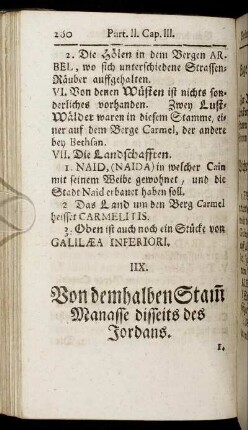 260 Part. II. Cap. III.
2. Die Hölen in dem Bergen AR-
BEL, wo sich unterschiedene Strassen-
Räuber auffgehalten.
VI. Von denen Wüsten ist nichts son-
derliches vorhanden. Zwey Lust-
Wälder waren in diesem Stamme, ei-
ner auf dem Berge Carmel, der andere
bey Bethsan.
VII. Die Landschafften.
1. NAID, (NAIDA) in welcher Cain
mit seinem Weibe gewohnet, und die
Stadt Naid erbauet haben soll.
2 Das Land um den Berg Carmel
heisset CARMELITIS.
3. Oben ist auch noch ein Stücke von
GALILÆA INFERIORI.
IIX.
Von dem halben Stam̃
Manasse disseits des
Jordans.
1.